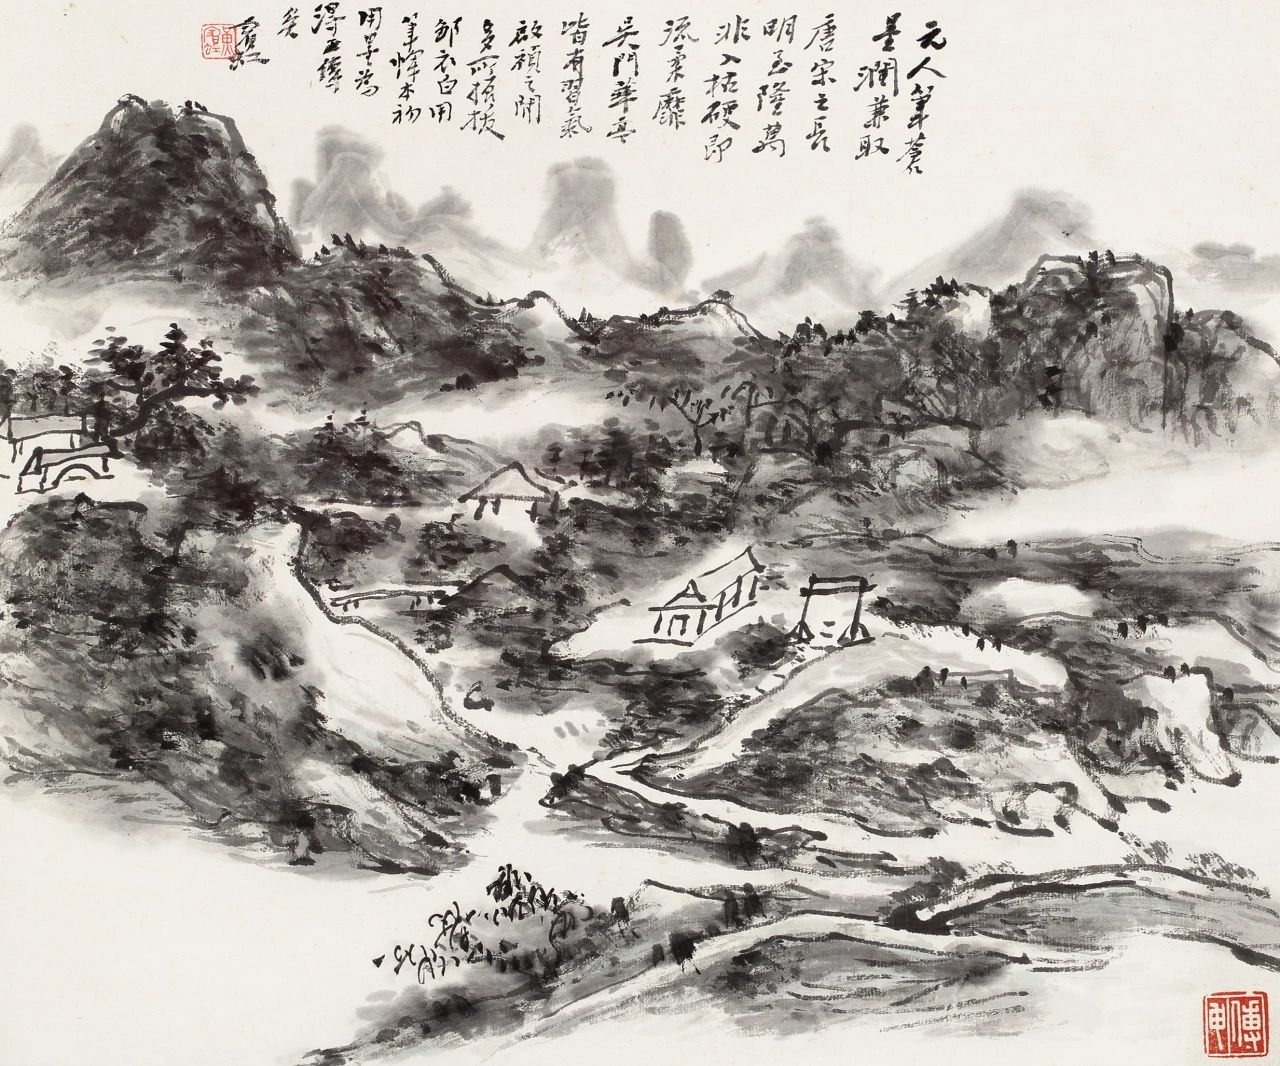 元人筆蒼
墨潤兼取
唐宋之長
明至隆萬
非入枯硬即
流柔靡
吳門華亭
皆有習氣
啟禎之間
多所振拔
鄒衣白用
筆惲本初
用墨為
得正傳
矣
賓虹